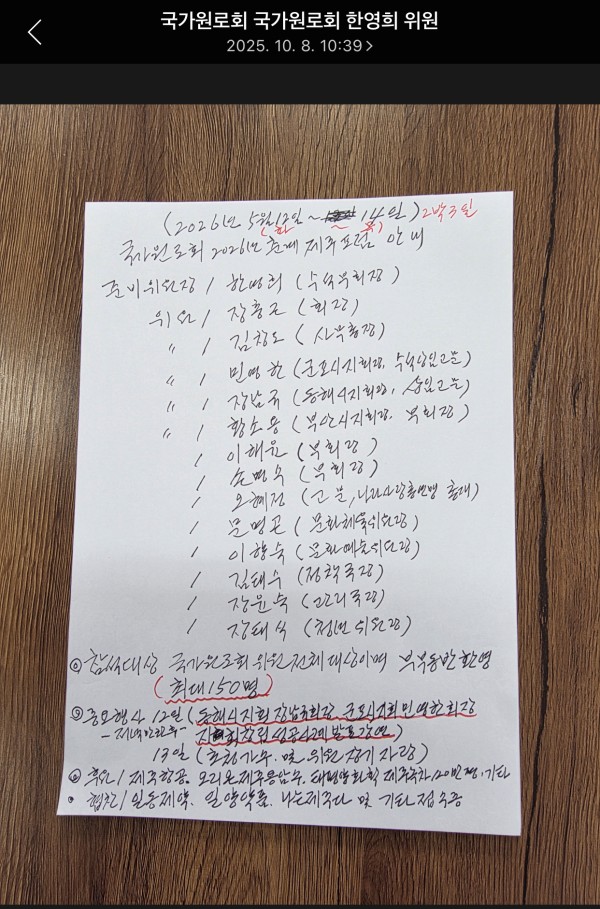 국가원로회 국가원로회 한영희 위원
2025. 10. 8. 10:39 >
(2026년 5월 12일 ~ 14일) 2박3일
(화) ~ (목)
국가원로회 2026년 춘계 제주포럼 안내
준비위원장 / 한영희 (수석부회장)
위원 / 장흥근 (회장)
〃 / 김창도 (사무총장)
〃 / 민영한 (군포시지회장, 수석상임고문)
〃 / 장남국 (동해시지회장, 상임고문)
〃 / 황소용 (부안시지회장, 부회장)
/ 이해윤 (부회장)
/ (부회장)
/ 오혜정 (고문, 나라사랑총연맹 총재)
/ 문명곤 (문화체육위원장)
/ 이향숙 (문화예술위원장)
/ 김태수 (정책국장)
/ 장윤숙 (관리국장)
/ 장태식 (청년위원장)
참석대상 국가원로회 위원 전체 대상이며 부부동반 환영
(최대 150명)
주요행사 12일 (동해시지회 장남국회장, 군포시지회 민영한회장
-저녁만찬후- 지회창립 성공사례발표강연)
13일 (초청가수. 및 위원 장기자랑)
후원 / 제주항공. 오리온제주용암수. 태평양화학 제주 기타
협찬 / 일동제약. 일양약품. 나는제주다 및 기타 접수중